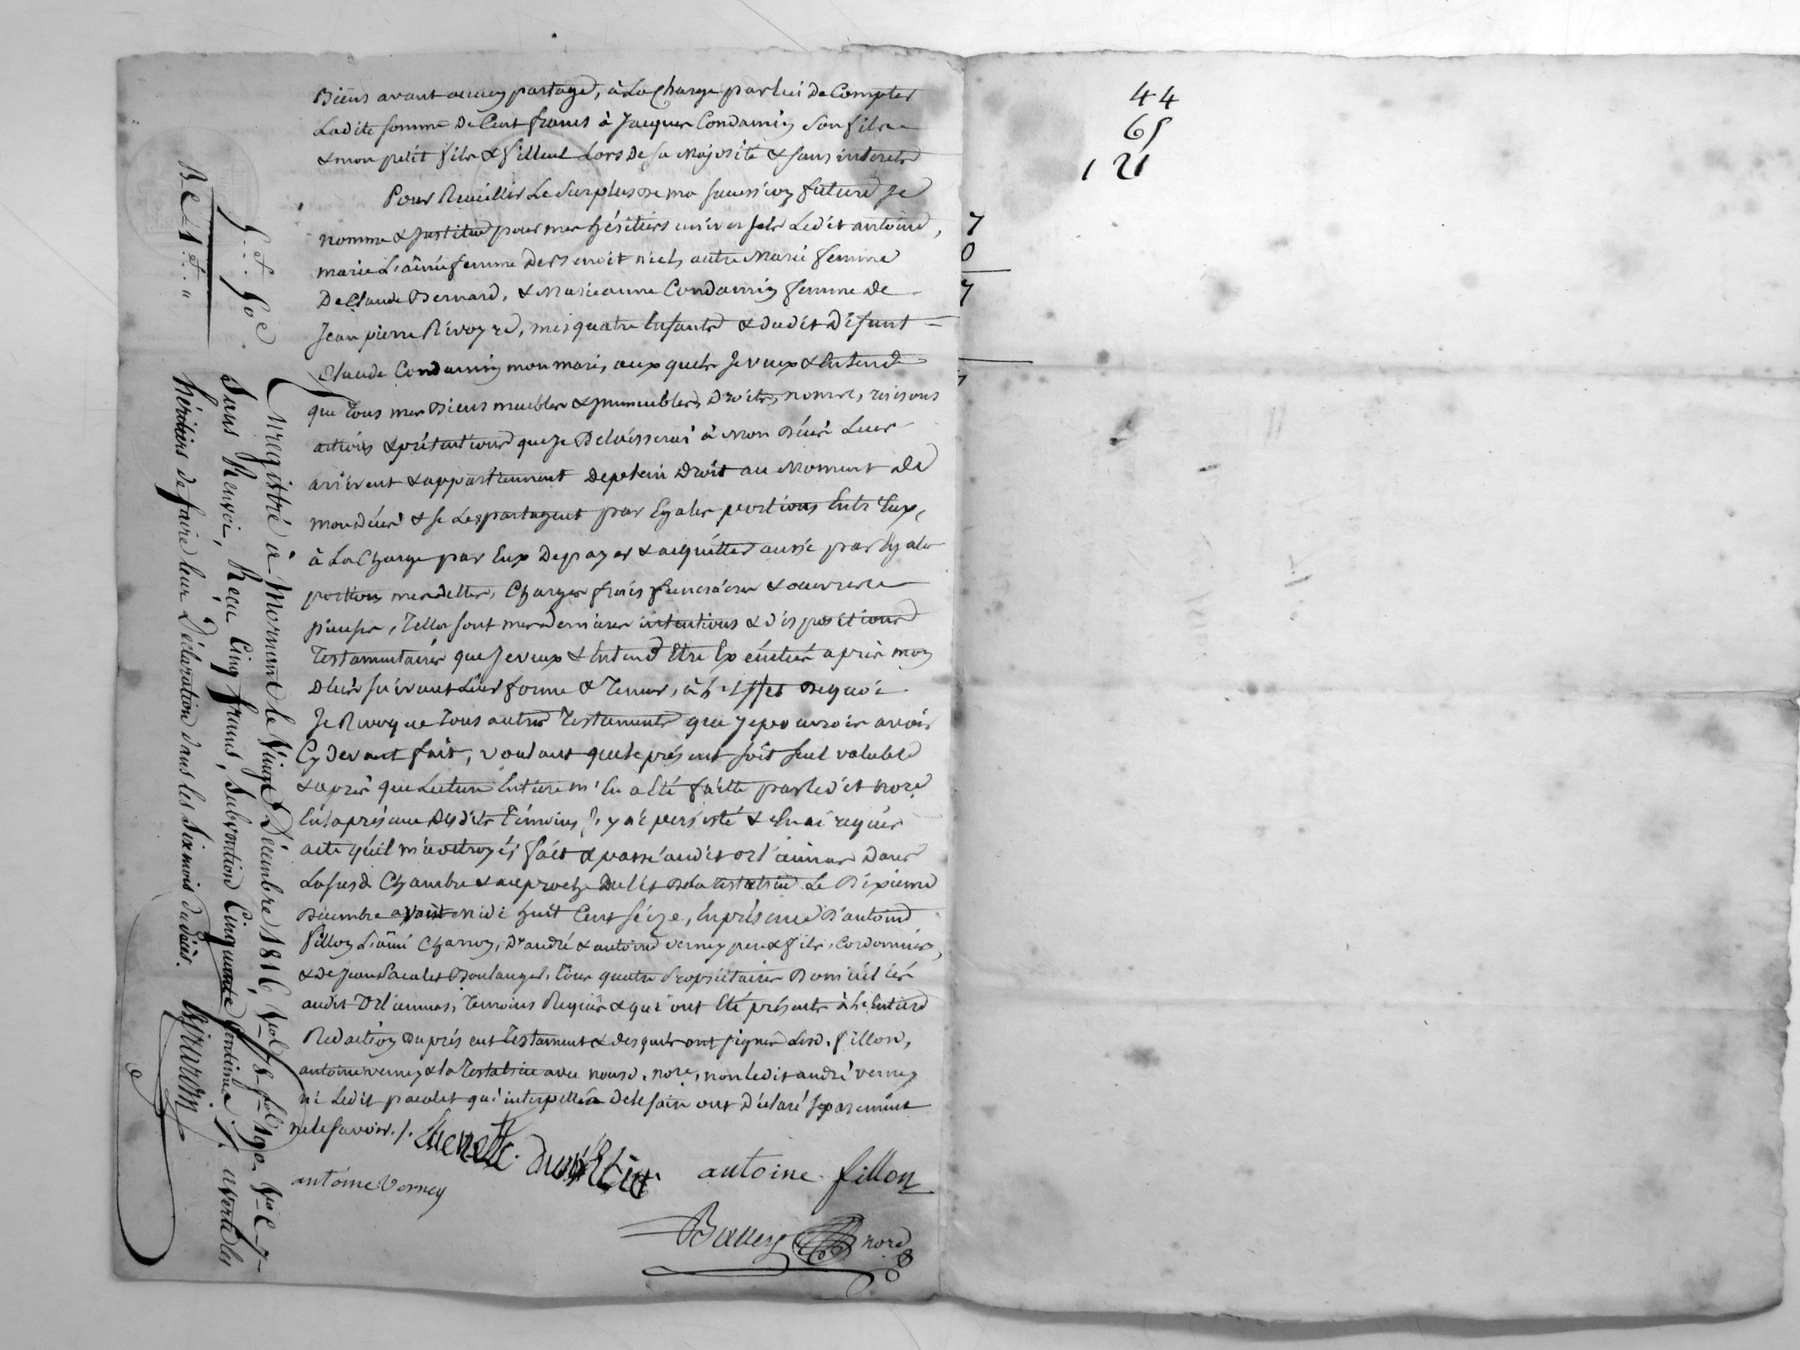 Biens avant aucun partage, à La Charge par lui de Compter
Ladite somme de Cent francs à Jacques Condamin son fils
& mon petit fils & filleul Lors de sa Majorité & sans interets
Pour Recuillir Le Surplus de ma succession future Je
nomme & Institue pour mes héritiers universels Ledit antoine,
marie L'aînée femme de Benoit niel, autre Marie femme
De Claude Bernard, & Marieanne Condamin femme de
Jean pierre Rivoyre, mes quatre Enfants & dudit Défunt
Claude Condamin mon mari, auxquels Je veux & Entend
que Tous mes Biens meubles & Immeubles, Droits, noms, raisons
actions & prétentions que Je Délaisserai à Mon Décès Leur
arrivent & appartiennent De plein Droit au Moment de
mon décès & se Les partagent par Egales portions Entr'Eux,
à La Charge par Eux De payer & acquitter aussi par Egale
portion mes dettes, Charges frais funeraires & œuvres
pieuses, Telles sont mes dernieres intentions & dispositions
Testamentaires que Je veux & Entend Etre Exécutées après mon
Décès suivant Leur forme & Teneur, à L'Effet De quoi
Je Revoque Tous autres Testaments que Je pourrois avoir
Cy Devant fait, voulant que le présent soit seul valable
& après que Lecture Entiere m'En a Eté faitte par Ledit nore
En la présence Desdits Témoins J'y ai persisté & En ai requis
acte qu'il m'a octroyé, fait & passé audit orliennas Dans
La susde Chambre & au proche Du lit De la testatrice Le Dixieme
Décembre avant midi huit Cent seize, En présence D'antoine
fillon L'aîné Charron, D'andré & antoine verney pere & fils, Cordonniers,
& de Jean Pacalet Boulanger, Tous quatre Propriétaires Domiciliés
audit Orliennas, Temoins Requis & qui ont Eté présents à L'Entiere
Redaction du présent Testament & desquels ont signer Lesd. fillon,
antoine verney & la Testatrice avec nousd. nore, non ledit andré verney
ni Ledit pacalet qui interpellés de le faire ont Déclaré separement
ne le savoir ./.
antoine fillon
antoine Verney
nore
Enregistré à Mornant le Vingt Décembre 1816,
Reçu Cinq francs, Subvention Cinquante Centimes
héritiers de faire leur Déclaration dans les Six mois du décès.
44
65
121
7
0
7